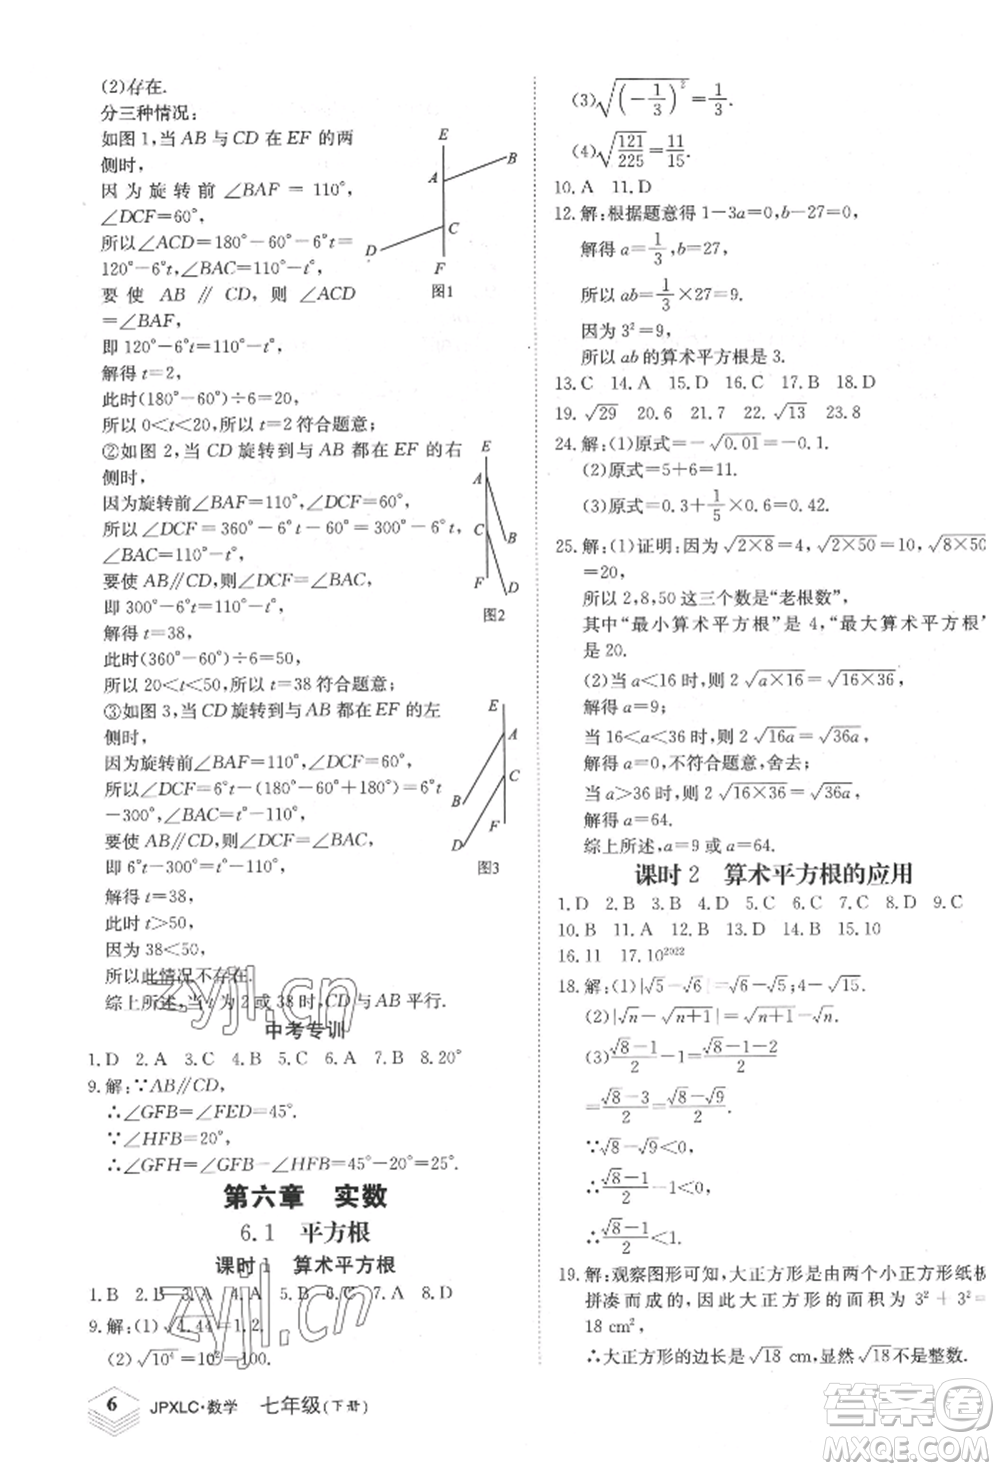 (2)存在.
分三种情况:
如图 1,当 AB 与 CD 在 EF 的两
侧时,
因为旋转前∠BAF = 110°,
∠DCF=60°,
所以∠ACD=180°-60°-6°t=
120°-6°t,∠BAC=110°-t°,
要使 AB∥CD,则∠ACD
=∠BAF,
即 120°-6°t=110°-t°,
解得 t=2,
此时(180°-60°)÷6=20,
所以 0<t<20,所以 t=2 符合题意;
②如图 2,当 CD 旋转到与 AB 都在 EF 的右
侧时,
因为旋转前∠BAF=110°,∠DCF=60°,
所以∠DCF=360°-6°t-60°=300°-6°t,
∠BAC=110°-t°,
要使 AB∥CD,则∠DCF=∠BAC,
即 300°-6°t=110°-t°,
解得 t=38,
此时(360°-60°)÷6=50,
所以 20<t<50,所以 t=38 符合题意;
③如图 3,当 CD 旋转到与 AB 都在 EF 的左
侧时,
因为旋转前∠BAF=110°,∠DCF=60°,
所以∠DCF=6°t-(180°-60°+180°)=6°t
-300°,∠BAC=t°-110°,
要使 AB∥CD,则∠DCF=∠BAC,
即 6°t-300°=t°-110°,
解得 t=38,
此时 t>50,
因为 38<50,
所以此情况不存在.
综上所述,当 t 为 2 或 38 时,CD 与 AB 平行.
E
B
A
C
D
F
图1
E
A
C
B
F
D
图2
E
A
C
B
F
D
图3
中考专训
1.D 2.A 3.C 4.B 5.C 6.A 7.B 8.20°
9.解:∵AB∥CD,
∴∠GFB=∠FED=45°.
∵∠HFB=20°,
∴∠GFH=∠GFB-∠HFB=45°-20°=25°.
第六章 实数
6.1 平方根
课时 1 算术平方根
1.B 2.B 3.A 4.A 5.C 6.A 7.A 8.D
9.解:(1)√1.44=1.2.
(2)√10⁴=10²=100.
(3)√(-1/3)²=1/3.
(4)√121/225=11/15.
10.A 11.D
12.解:根据题意得 1-3a=0,b-27=0,
解得 a=1/3,b=27,
所以 ab=1/3×27=9.
因为 3²=9,
所以 ab 的算术平方根是 3.
13.C 14.A 15.D 16.C 17.B 18.D
19.√29 20.6 21.7 22.√13 23.8
24.解:(1)原式=-√0.01=-0.1.
(2)原式=5+6=11.
(3)原式=0.3+1/5×0.6=0.42.
25.解:(1)证明:因为√2×8=4,√2×50=10,√8×50
=20,
所以 2,8,50 这三个数是“老根数”,
其中“最小算术平方根”是 4,“最大算术平方根”
是 20.
(2)当 a<16 时,则 2√a×16=√16×36,
解得 a=9;
当 16<a<36 时,则 2√16a=√36a,
解得 a=0,不符合题意,舍去;
当 a>36 时,则 2√16×36=√36a,
解得 a=64.
综上所述,a=9 或 a=64.
课时 2 算术平方根的应用
1.D 2.B 3.B 4.D 5.B 6.C 7.C 8.D 9.C
10.B 11.A 12.B 13.D 14.B 15.10
16.11 17.10²⁰²²
18.解:(1)|√5-√6|=√6-√5;4-√15.
(2)|√n-√n+1|=√n+1-√n.
(3)√8-1/2-1=√8-1-2/2
=√8-3/2=√8-√9/2.
∵√8-√9<0,
∴√8-1/2-1<0,
∴√8-1/2<1.
19.解:观察图形可知,大正方形是由两个小正方形纸板
拼凑而成的,因此大正方形的面积为 3²+3²=
18 cm²,
∴大正方形的边长是√18 cm,是不是整数.
6 JPXLC·数学 七年级(下册)
zyjl.cn
zyjl.cn
答案圈
MXQE.COM